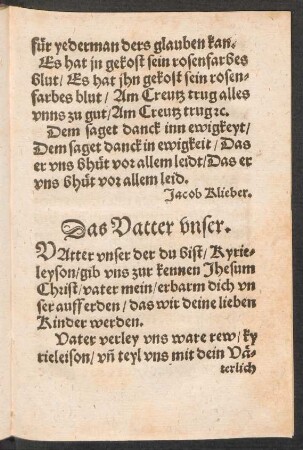 für yederman ders glauben kan.
Es hat jn gekost sein rosenfarbes
blut/ Es hat jhn gekost sein rosen-
farbes blut/ Am Creutz trug alles
vnns zu gut/ Am Creutz trug ꝛc.
Dem saget danck inn ewigkeyt/
Dem saget danck in ewigkeit/ Das
er vns bhüt vor allem leidt/ Das er
vns bhüt vor allem leid.
Jacob Klieber.
Das Vatter vnser.
VAtter vnser der du bist/ Kyrie-
leyson/ gib vns zur kennen Jhesum
Christ/ vater mein/ erbarm dich vn
ser aufferden/ das wir deine lieben
Kinder werden.
Vater verley vns ware rew/ ky
rieleison/ vñ teyl vns mit dein Vä-
terlich